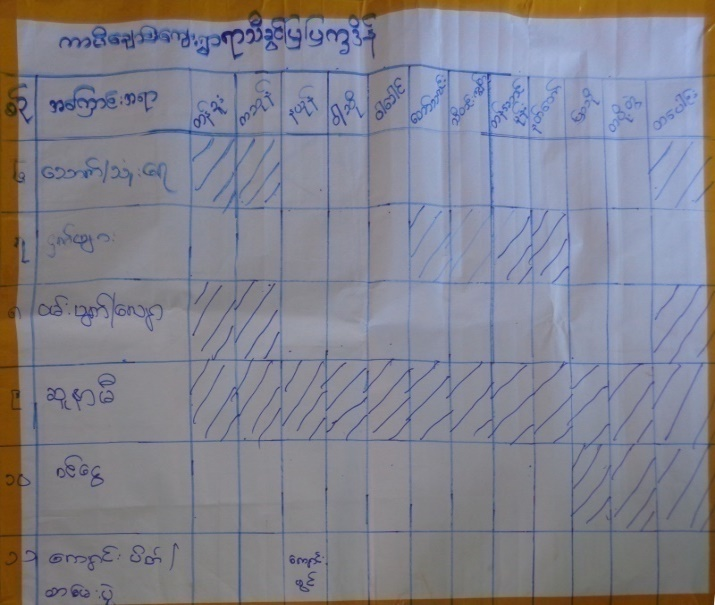 ရာသီခွင်ပြပြက္ခဒိန်
စဉ် အကြောင်းအရာ တန်ခူး ကဆုန် နယုန် ဝါဆို ဝါခေါင် တော်သလင်း သီတင်းကျွတ် တန်ဆောင်မုန်း နတ်တော် ပြာသို တပို့တွဲ တပေါင်း
၆ သောက်/သုံးရေ
၇ ငှက်ဖျား
၈ ဝမ်းပျက်/လျှော
၉ ဆူနာမီ
၁၀ ဝင်ငွေ
၁၁ ကျောင်းပိတ်/ ကျောင်းဖွင့်
စာမေးပွဲ